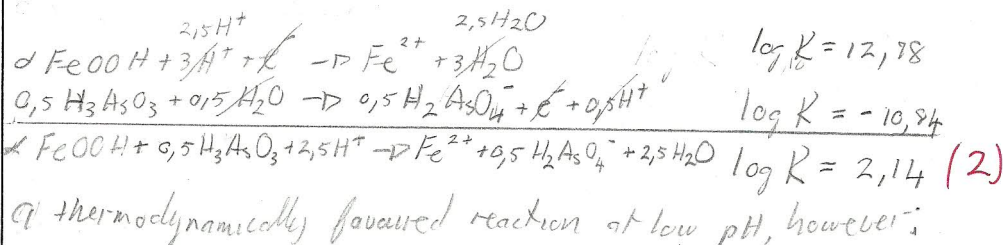 2,5H⁺ 2,5H2O
α FeOOH + 3H⁺ + e⁻ → Fe²⁺ + 3H₂O log K = 12,98
0,5 H₃AsO₃ + 0,5 H₂O → 0,5 H₂AsO₄⁻ + e⁻ + 0,5H⁺ log K = -10,84
α FeOOH + 0,5H₃AsO₃ + 2,5H⁺ → Fe²⁺ + 0,5 H₂AsO₄⁻ + 2,5H₂O log K = 2,14 (2)
a thermodynamically favoured reaction at low pH, however: